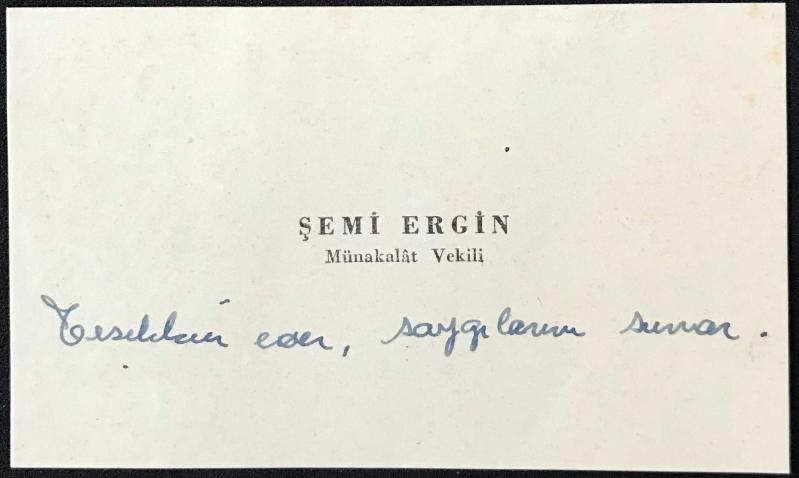 ŞEMİ ERGİN
Münakalât Vekili
Teşekkür eder, saygılarımı sunar.